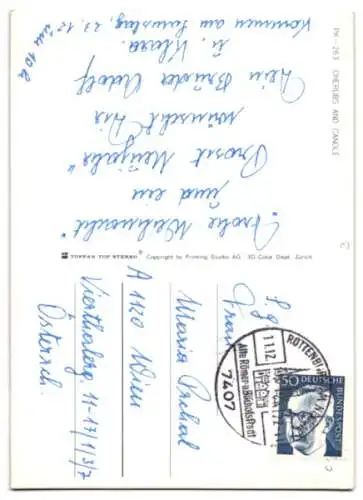 PK-263 CHERUBS AND CANDLE
"Frohe Weihnacht"
und ein
"Prosit Neujahr"
wünscht Dir
Dein Bruder Adolf
u. Klara.
Kommen am Samstag, 23.12
um 10h
TOPPAN TOP STEREO® Copyright by Printing Studio AG. 3D Color Dept. Zürich
Frau
Maria
A 1120 Wien
Vierthalerg. 11-17/1/3/7
Österreich.
ROTTENBURG
11.12
Alte Römer- u. Bischofsstadt
7407
50 DEUTSCHE BUNDESPOST